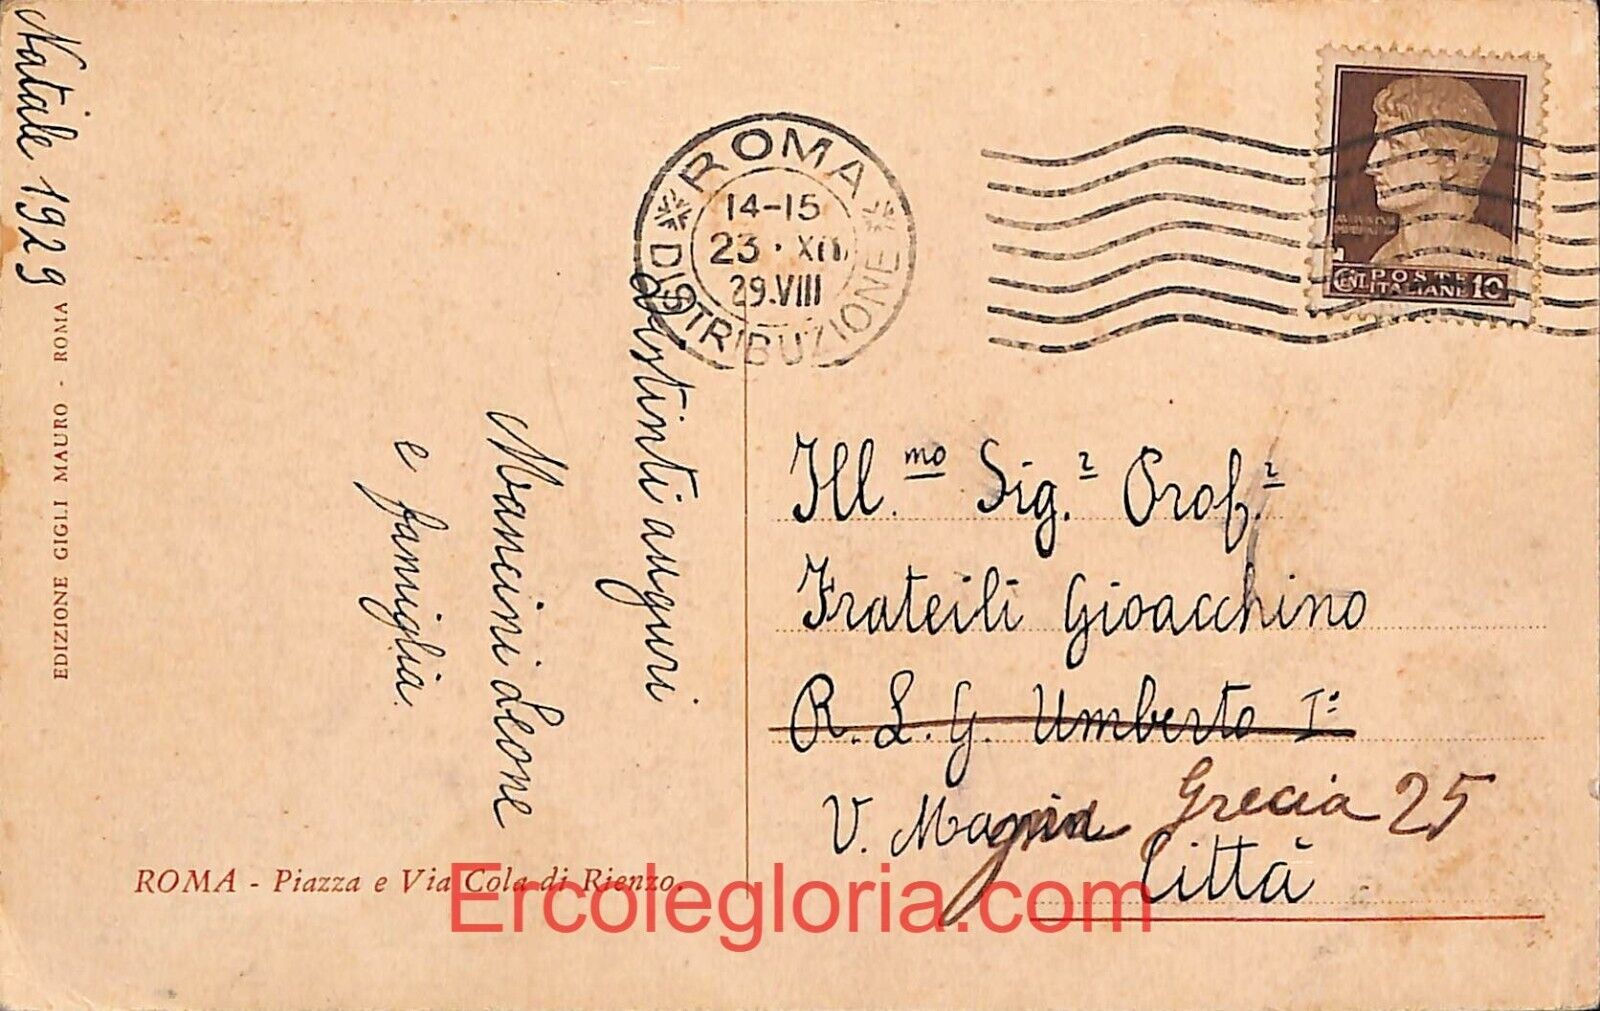 Natale 1929
distinti auguri
Mancini Leone
e famiglia.
EDIZIONE GIGLI MAURO - ROMA
ROMA - Piazza e Via Cola di Rienzo.
ROMA
14-15
23·XII
29.VIII
DISTRIBUZIONE
POSTE
ITALIANE
CENT. 10
Ill.mo Sig.r Prof.r
Frateili Gioacchino
R. L. G. Umberto I°
V. Magna Grecia 25
Città
Ercolegloria.com